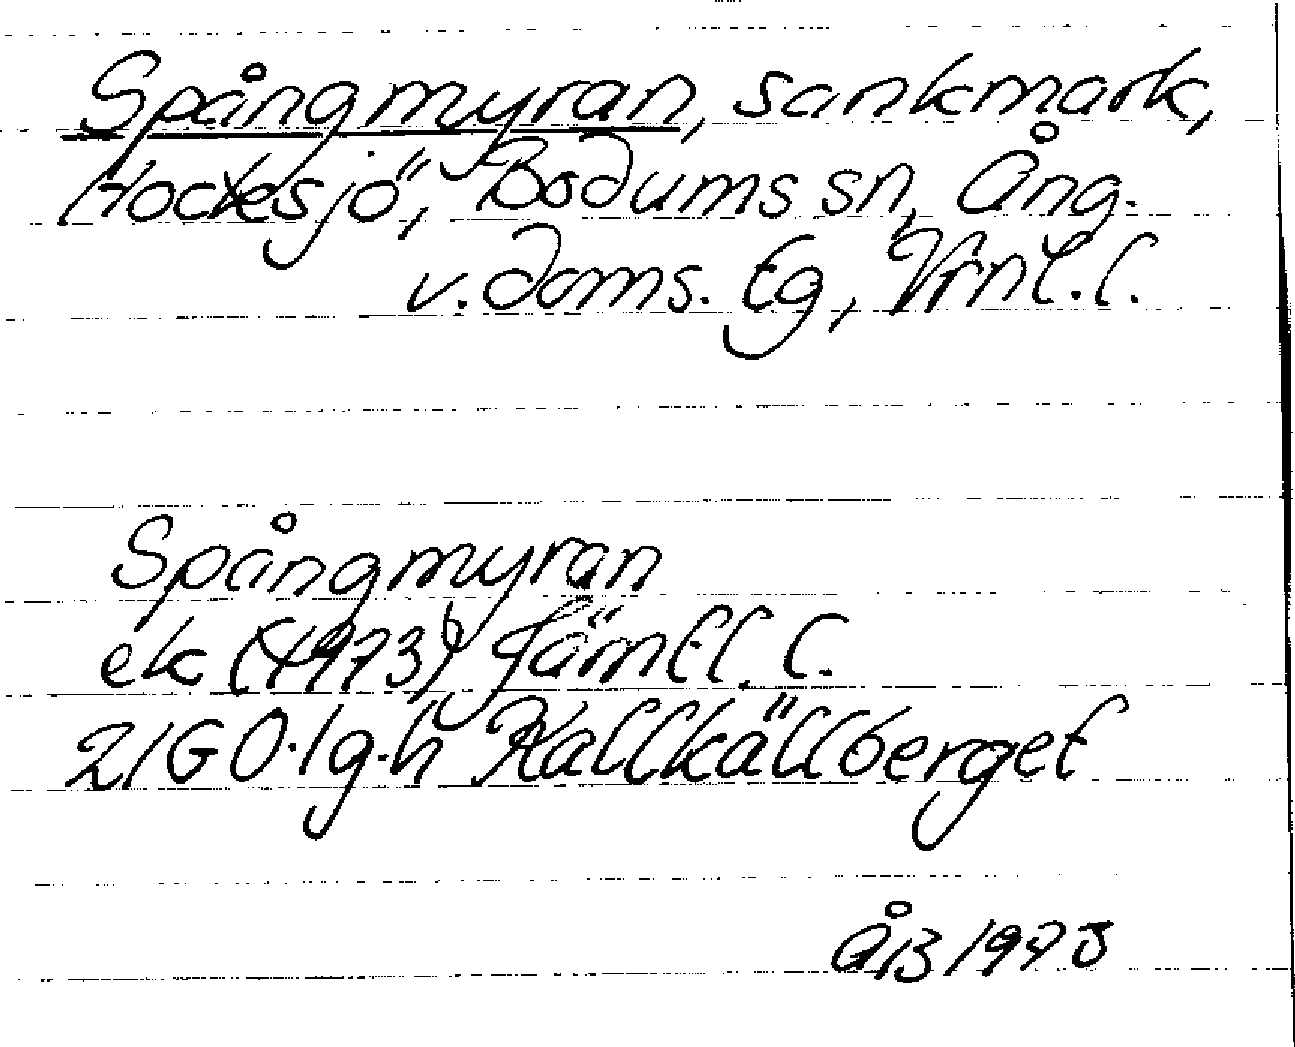 Spångmyran, sankmark,
Hocksjö, Bodums sn, Ång.
v. doms. tg, Vrnl. l.
Spångmyran
ek (1973) Jämtl. l.
21G 0-1g-h Kallkällberget
ÅB 1973